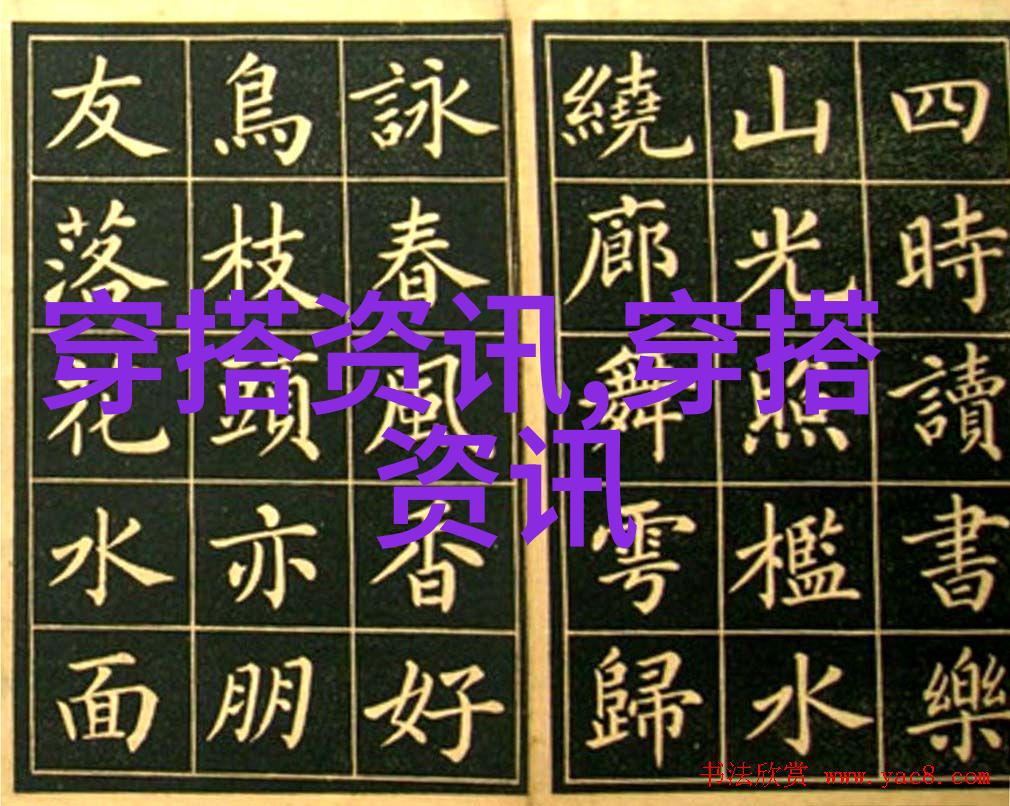 四時讀書樂
山光照檻水
繞廊舞雩歸
詠春風香好
鳥枝頭亦朋
友落花水面
穿搭资讯,穿搭
资讯
书法欣赏 www.yac8.com